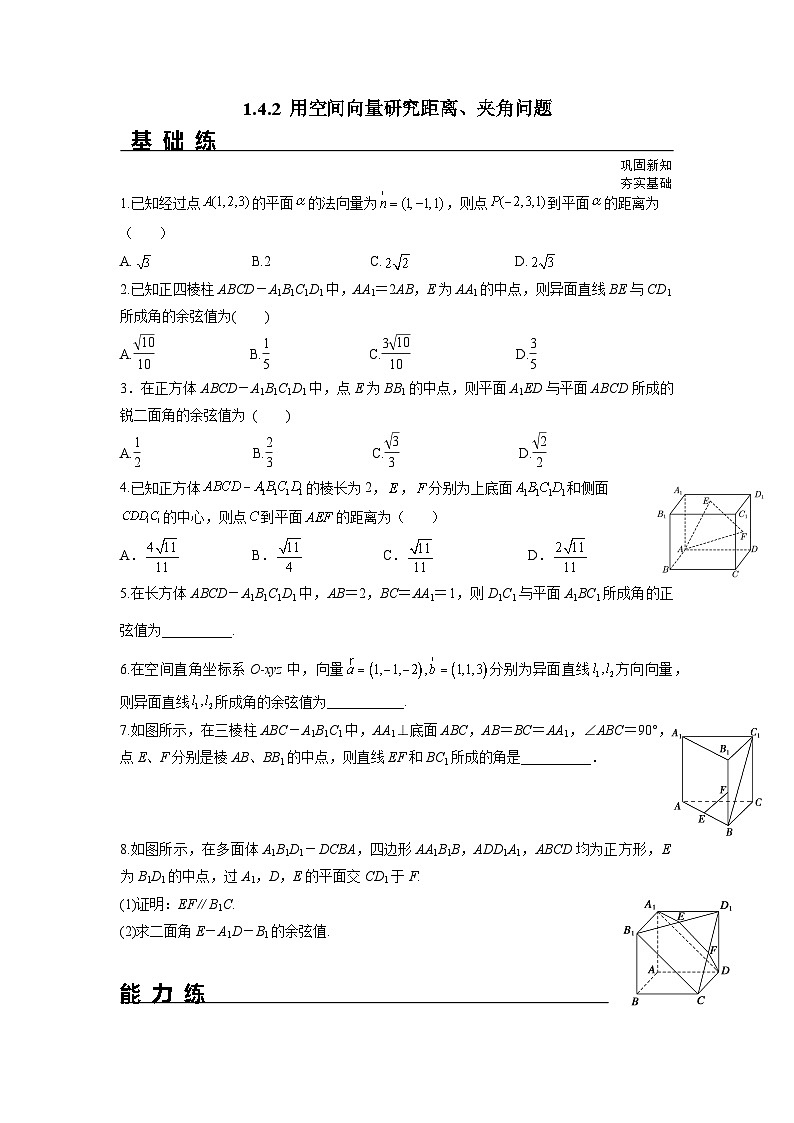 1.4.2 用空间向量研究距离、夹角问题
基 础 练
巩固新知
夯实基础
1.已知经过点A(1,2,3)的平面α的法向量为n⃗=(1,−1,1)，则点P(−2,3,1)到平面α的距离为
（　　）
A. √3　B.2　C. 2√2　D. 2√3
2.已知正四棱柱ABCD－A₁B₁C₁D₁中，AA₁＝2AB，E为AA₁的中点，则异面直线BE与CD₁
所成角的余弦值为(　　)
A.√10/10　B.1/5　C.3√10/10　D.3/5
3．在正方体ABCD－A₁B₁C₁D₁中，点E为BB₁的中点，则平面A₁ED与平面ABCD所成的
锐二面角的余弦值为 (　　)
A.1/2　B.2/3　C.√3/3　D.√2/2
4.已知正方体ABCD－A₁B₁C₁D₁的棱长为2，E，F分别为上底面A₁B₁C₁D₁和侧面
CDD₁C₁的中心，则点C到平面AEF的距离为（　　）
A．4√11/11　B．√11/4　C．√11/11　D．2√11/11
A₁
E
D₁
B₁
C₁
F
A
D
B
C
5.在长方体ABCD－A₁B₁C₁D₁中，AB＝2，BC＝AA₁＝1，则D₁C₁与平面A₁BC₁所成角的正
弦值为__________.
6.在空间直角坐标系O-xyz中，向量a⃗=(1,−1,−2),b⃗=(1,1,3)分别为异面直线l₁,l₂方向向量，
则异面直线l₁,l₂所成角的余弦值为___________.
7.如图所示，在三棱柱ABC－A₁B₁C₁中，AA₁⊥底面ABC，AB＝BC＝AA₁，∠ABC＝90°，
点E、F分别是棱AB、BB₁的中点，则直线EF和BC₁所成的角是__________．
A₁
C₁
B₁
F
A
C
E
B
8.如图所示，在多面体A₁B₁D₁－DCBA，四边形AA₁B₁B，ADD₁A₁，ABCD均为正方形，E
为B₁D₁的中点，过A₁，D，E的平面交CD₁于F.
(1)证明：EF∥B₁C.
(2)求二面角E－A₁D－B₁的余弦值.
A₁
D₁
E
B₁
F
A
D
B
C
能 力 练